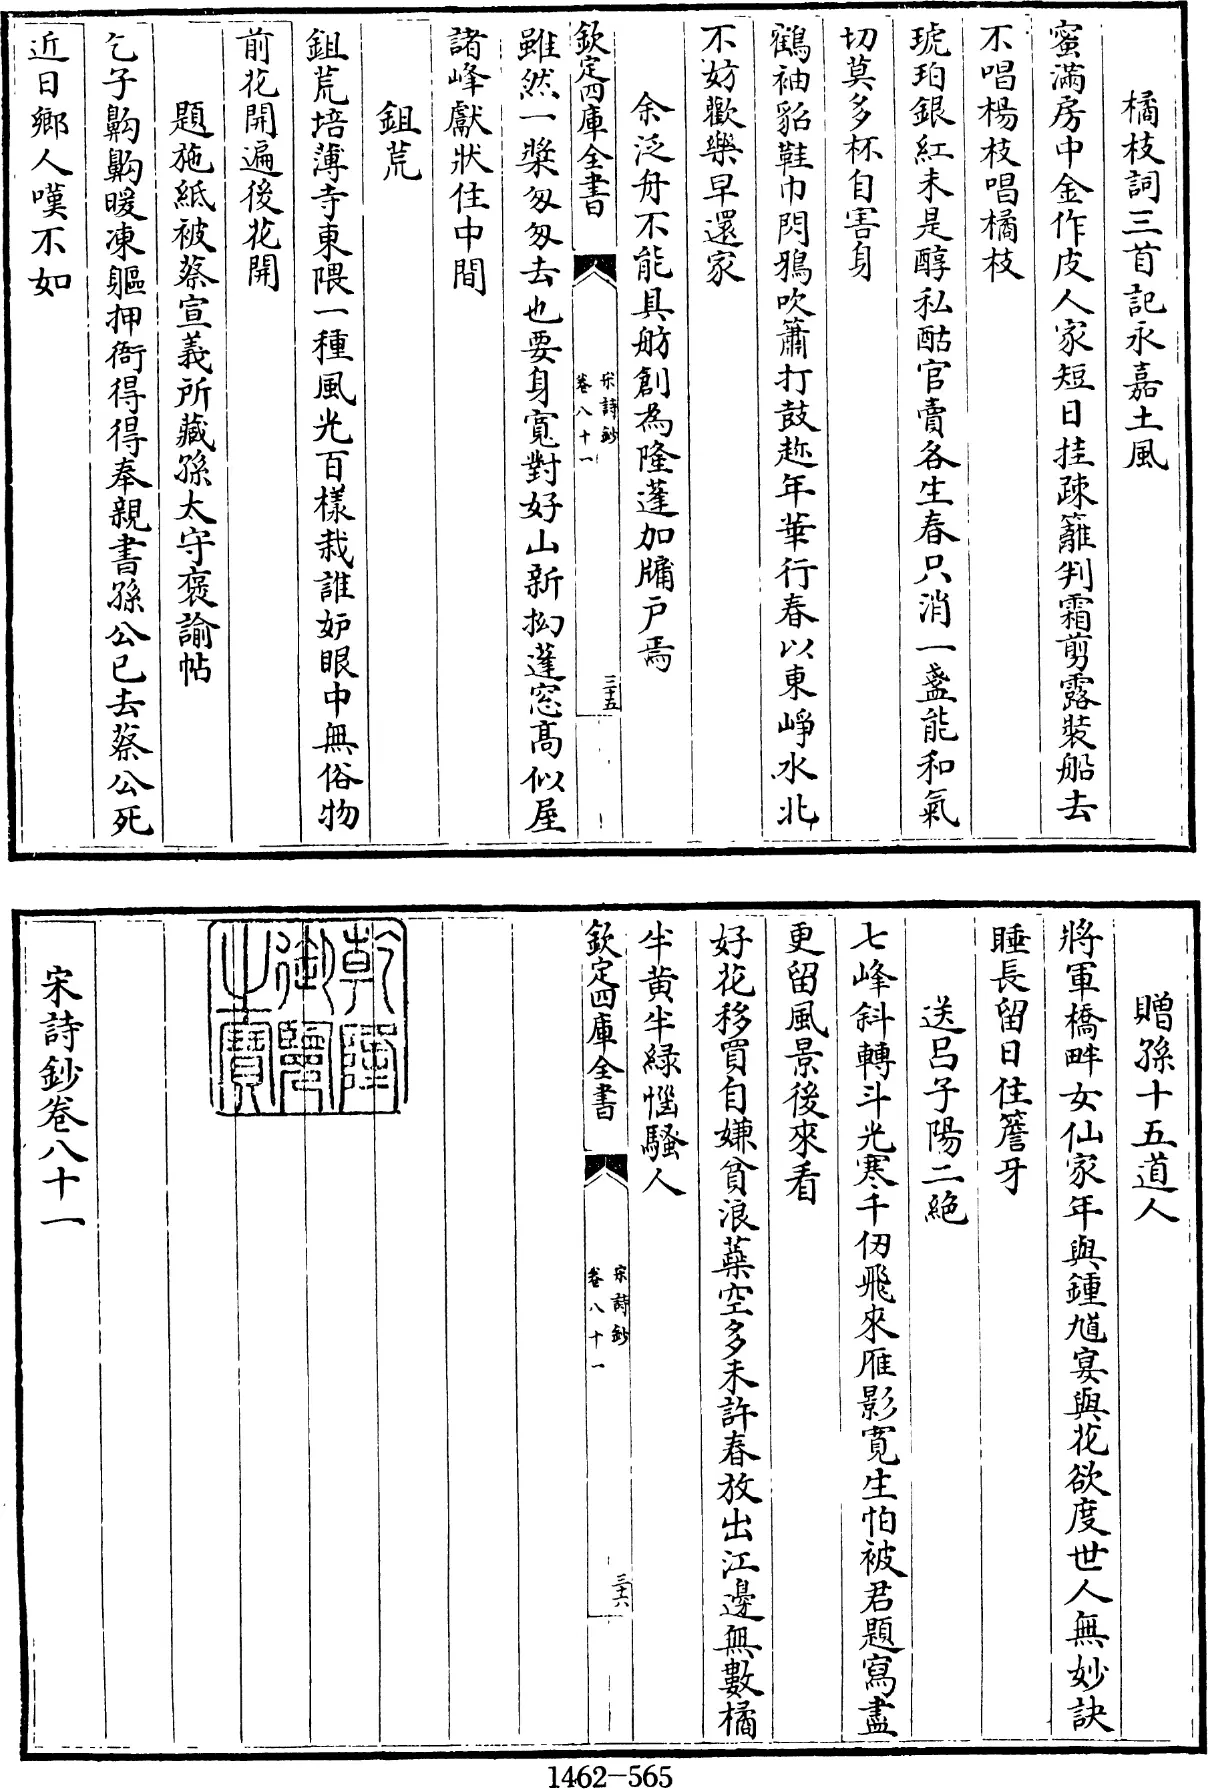 橘枝詞三首記永嘉土風
蜜滿房中金作皮人家短日挂疎籬判霜剪露裝船去
不唱楊枝唱橘枝
琥珀銀紅未是醇私酤官賣各生春只消一盞能和氣
切莫多杯自害身
鶴袖貂鞋巾閃鴉吹簫打鼓趂年華行春以東崢水北
不妨歡樂早還家
余泛舟不能具舫創為隆蓬加牗户焉
欽定四庫全書
宋詩鈔
卷八十一
三十五
雖然一槳匆匆去也要身寛對好山新拗蓬窓髙似屋
諸峰獻狀住中間
鉏荒
鉏荒培薄寺東隈一種風光百樣栽誰妒眼中無俗物
前花開遍後花開
題施紙被蔡宣義所藏孫太守褒諭帖
乞子齁齁暖凍軀押衙得得奉親書孫公已去蔡公死
近日鄉人嘆不如
贈孫十五道人
將軍橋畔女仙家年與鍾馗宴與花欲度世人無妙訣
睡長留日住簷牙
送吕子陽二絶
七峰斜轉斗光寒千仞飛來雁影寛生怕被君題寫盡
更留風景後來看
好花移買自嫌貧浪蘂空多未許春放出江邊無數橘
半黄半緑惱騷人
欽定四庫全書
宋詩鈔
卷八十一
三十六
乾隆御覽之寶
宋詩鈔卷八十一
1462-565